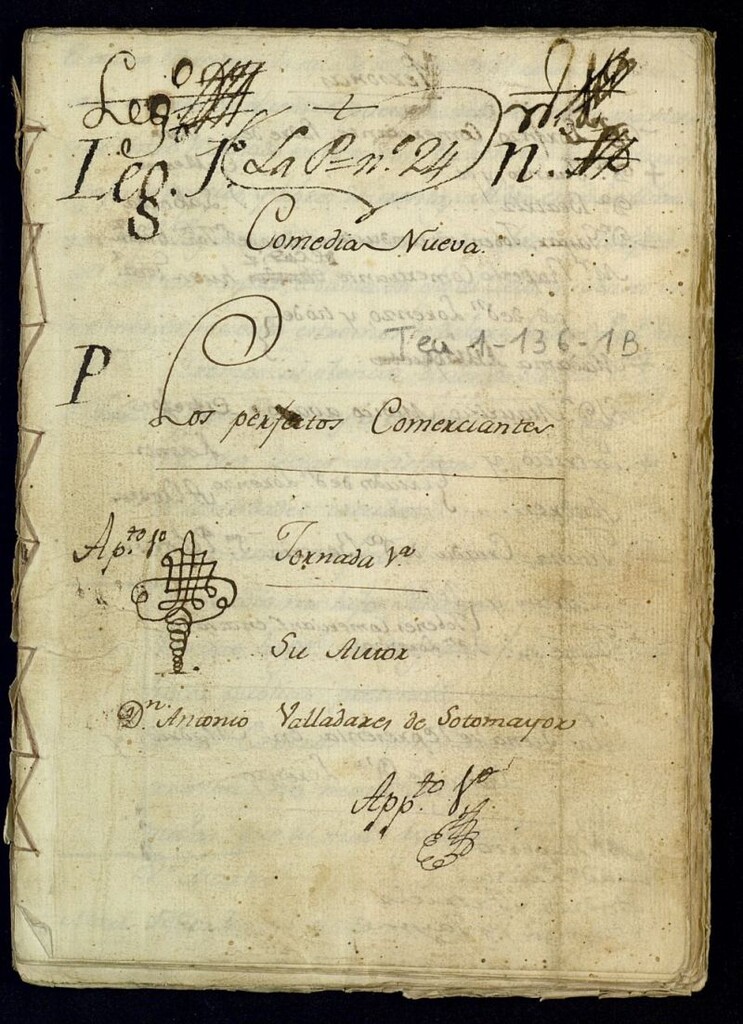 Leg.º
Leg. 1º La P=n.º 24 n.
Comedia Nueva.
Tea 1-136-1B
P
Los perfectos Comerciantes
Ap.to 1º Jornada 1.ª
Su Autor
D.n Antonio Valladares de Sotomayor
App.to 1.º